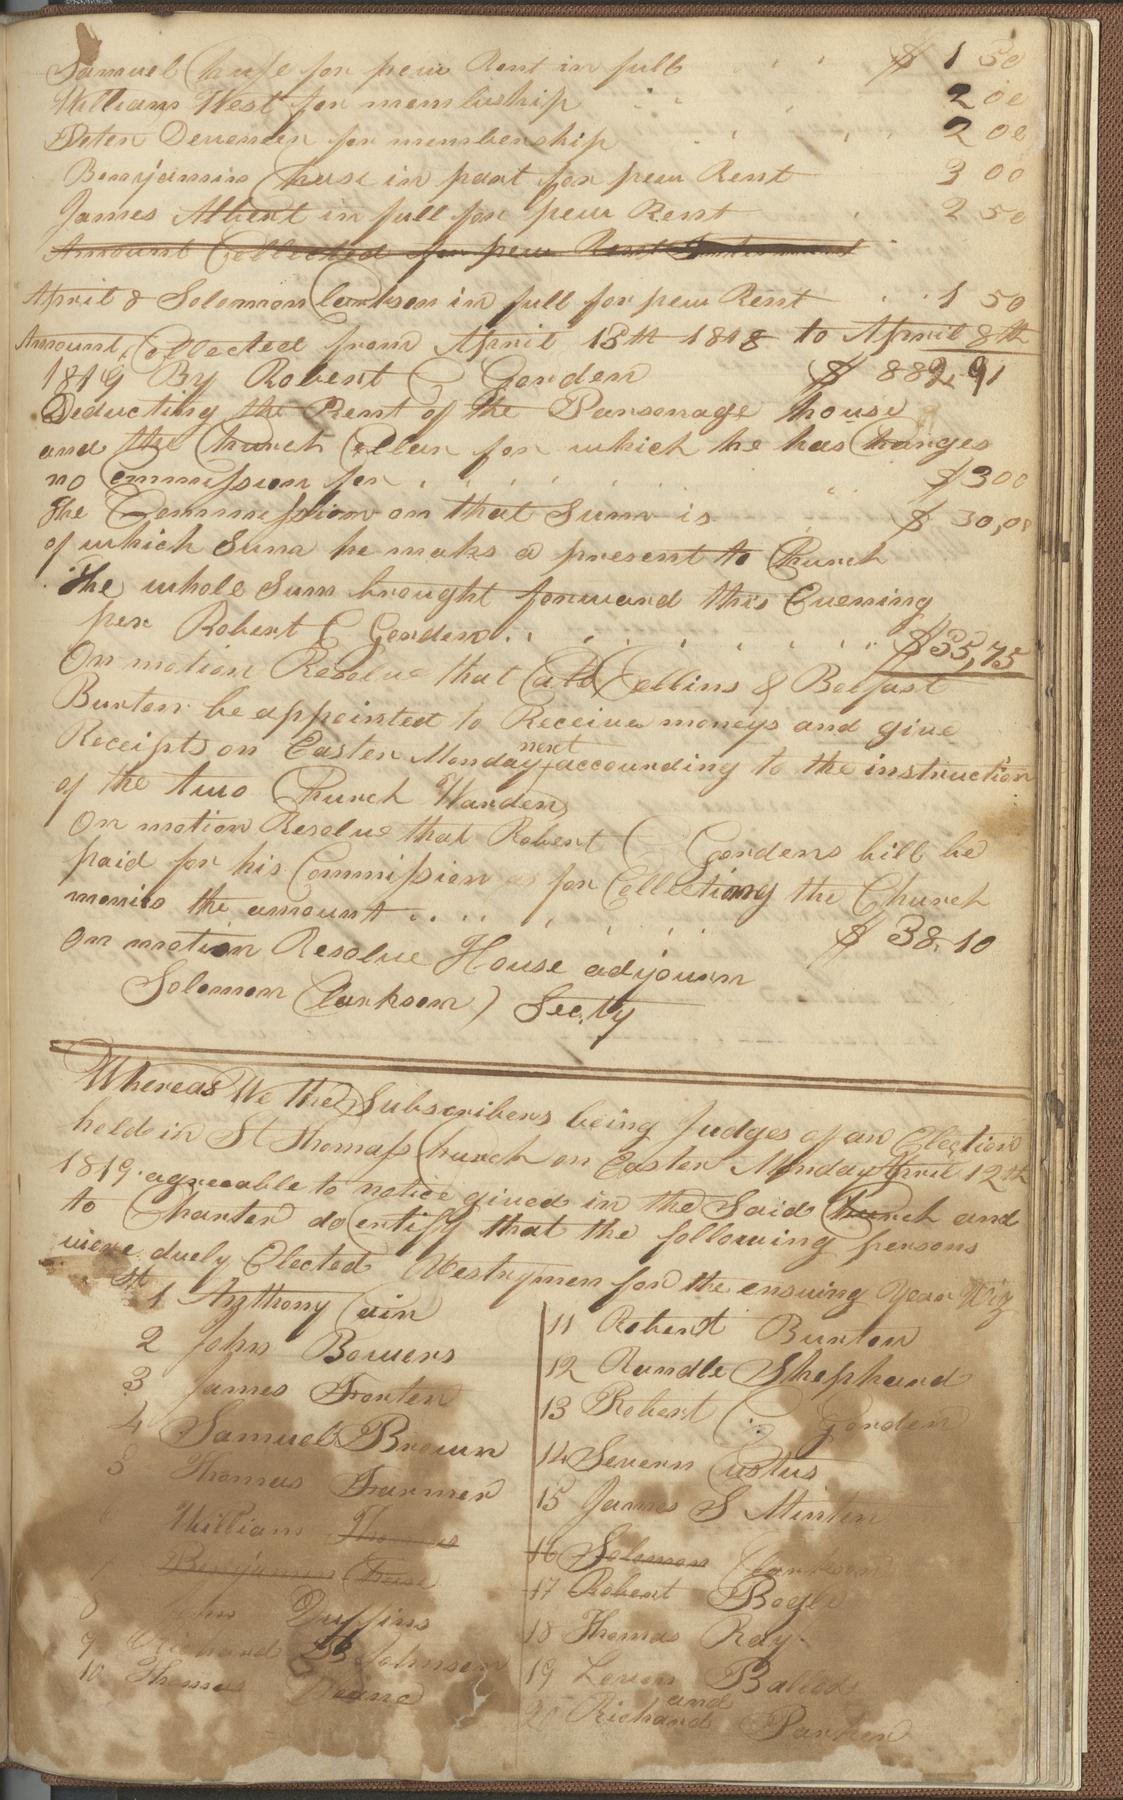 Samuel Chase for pew Rent in full $ 1 50
William West for membership 2 00
Peter Devereen for membership 2 00
Benjamin Chase in paat for pew Rent 3 00
James Albert in full for pew Rent 2 50
Amount Collected for pew Rent
April 8 Solomon Clarkson in full for pew Rent 1 50
Amount Collected from April 13th 1818 to April 8th
1819 By Robert C Gorden $ 882,91
Deducting the Rent of the Parsonage house
and the Church Cellar for which he has Charges
no Commission for $300
The Commission on that Sum is $ 30,00
of which Sum he maks a present to Church
The whole Sum brought forward this Evening
per Robert C Gorden $35,75
On motion Resolve that Cato Collins & Belfast
Burton be appointed to Receive moneys and give
Receipts on Easter Monday next accounding to the instruction
of the two Church Wardens
On motion Resolve that Robert C Gordens bill be
paid for his Commission as for Collectiong the Church
monies the amount $ 38,10
On motion Resolve House adjourn
Solomon Clarkson) Secty
Whereas We the Subscribers being Judges of an Election
held in St Thomass Church on Easter Monday April 12th
1819 agreeable to notice gived in the Said Church and
to Charter do Certify that the following persons
were duely Elected Vestrymen for the ensuing Year Viz
St
1 Anthony Cain
2 John Bowers
3 James Forten
4 Samuel Brown
5 Thomas Farmer
William Thomas
Benjamin Chase
8 John Duffins
9 Richard B Johnson
10 Thomas Deane
11 Robert Burton
12 Rundle Shephard
13 Robert C. Gorden
14 Severn Custus
15 James S Minten
16 Solomon Clarkson
17 Robert Bogle
18 Thomas Ray
19 Leven Ballod
and
20 Richard Parker